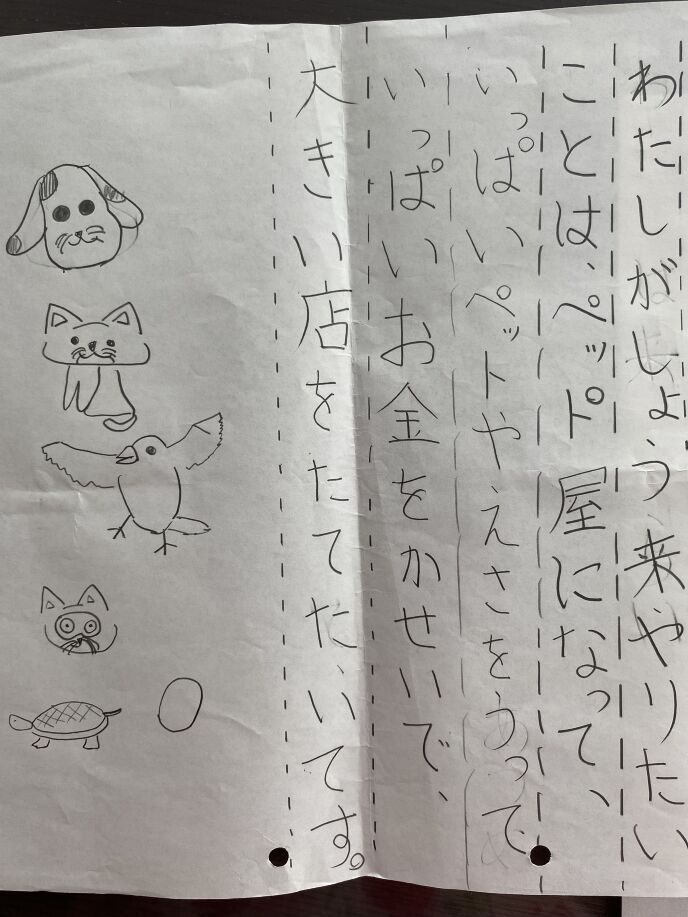 わたしがしょう来やりたい
ことは、ペット屋になって、
いっぱいペットやえさをうって、
いっぱいお金をかせいで、
大きい店をたてたいてす。